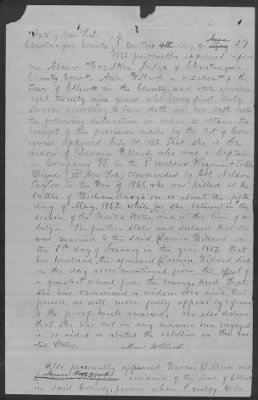 State of New York
Chautauqua County On this 4th day of August A.D.
1862 personally appeared before
me Abner Hazeltine Judge of Chautauqua
County Court, Ann Willard a resident of the
town of Ellicott in the County and state aforesaid
aged twenty nine years who being first duly
sworn according to law doth on her oath make
the following declaration in order to obtain the
benefit of the provision made by the Act of Con-
gress approved July 14, 1862. That she is the
widow of Darwin Willard, who was a Captain
in Company in the Excelsior Brigade
(New York) commanded by Col Nelson
Taylor in the War of 1861, who was killed at the
battle of Williamsburgh on or about the fifth
day of May, 1862 while in the
service of the United States and in the line of his
duty. She further states and declares that she
was married to the said Darwin Willard on
the day of January in the year 1852, that
her husband, the aforesaid Darwin Willard died
on the day above mentioned from the effect of
a gunshot wound from the enemy, and that
she has remained a widow ever since that
period, as will more fully appear by reference
to the proof hereto annexed. She also declares
that she has not in any manner been engaged
in or aided or abetted the rebellion in the Uni-
ted States.
Ann Willard
Also personally appeared
residents of the town of Ellicott
in said County, persons whom I certify to be